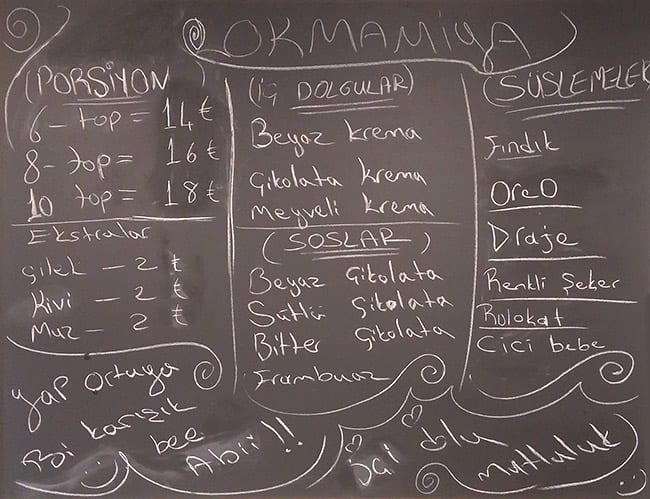 LOKMAMiYA
(PORSiYON)
6 - top = 14 ₺
8 - top = 16 ₺
10 top = 18 ₺
Ekstralar
Çilek - 2 ₺
Kivi - 2 ₺
Muz - 2 ₺
(iÇ DOLGULAR)
Beyaz krema
Çikolata krema
Meyveli krema
(SOSLAR)
Beyaz Çikolata
Sütlü Çikolata
Bitter Çikolata
Frambuaz
(SÜSLEMELER
Fındık
OreO
Draje
Renkli Şeker
Rulokat
Cici bebe
Yap ortaya
Bi karışık
bee Abii!!
içi dolu
mutluluk